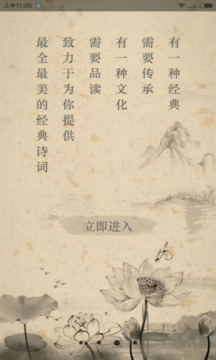 上午11:05
有一种经典
需要传承
有一种文化
需要品读
致力于为你提供
最全最美的经典诗词
立即进入